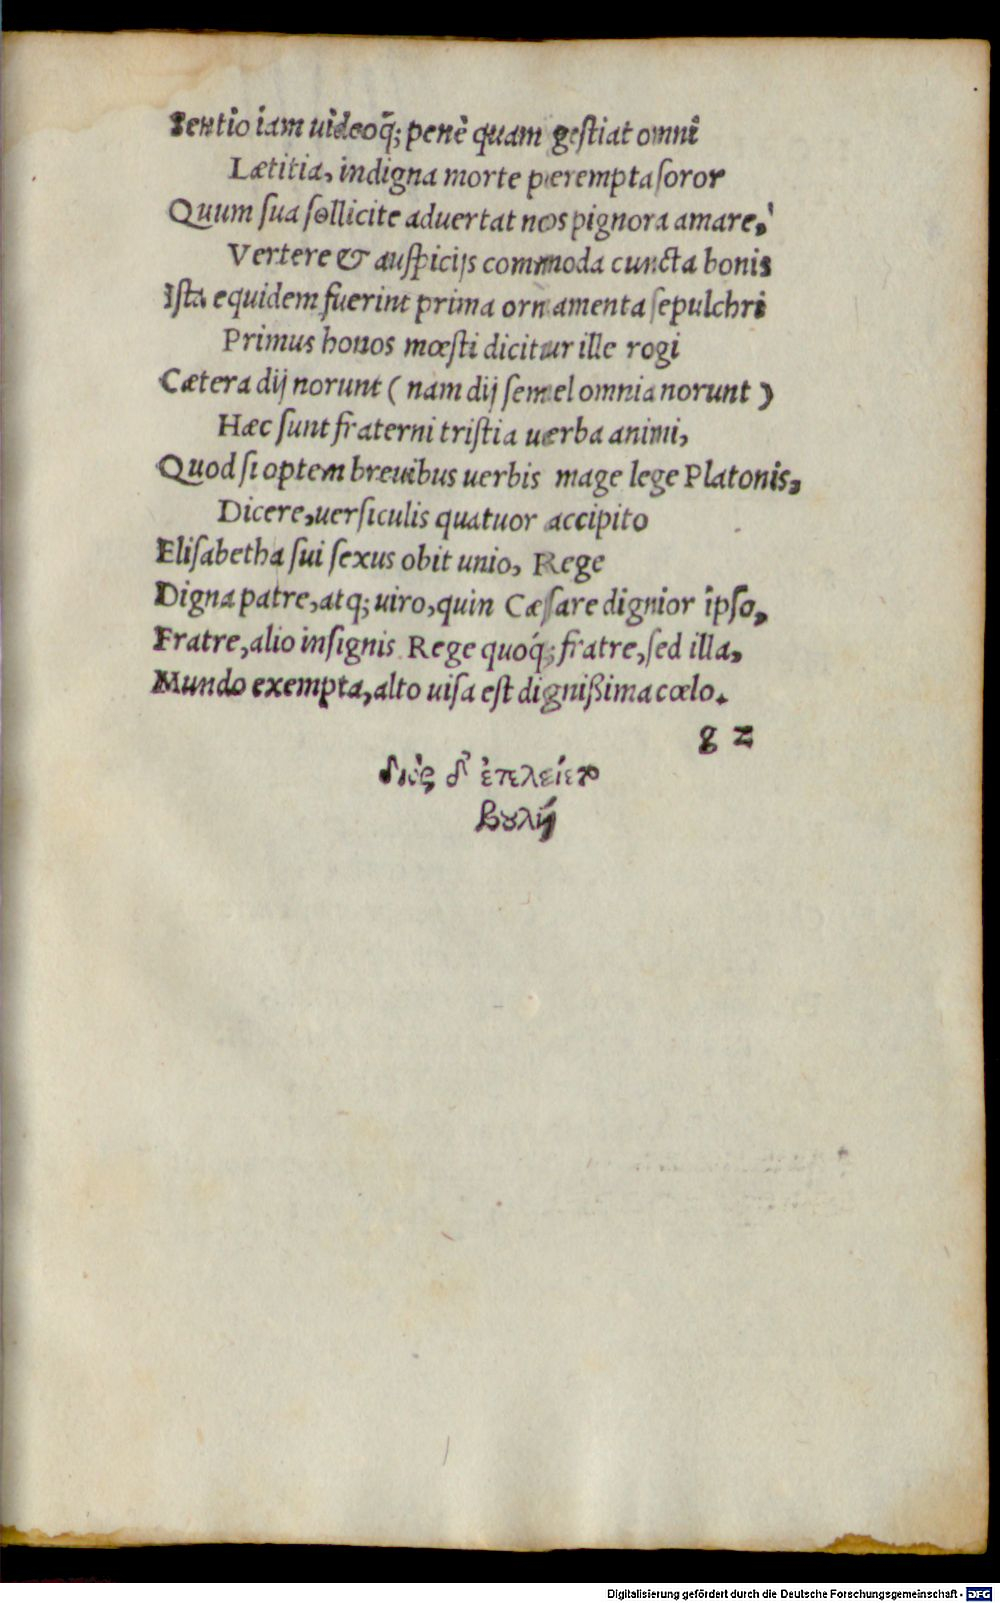 Sentio iam uideoq̃; penè quam gestiat omni
Lætitia, indigna morte peremptasoror
Quum sua sollicite aduertat nos pignora amare,
Vertere & auspicijs commoda cuncta bonis
Ista equidem fuerint prima ornamenta sepulchri
Primus honos mœsti dicitur ille rogi
Cætera dij norunt (nam dij semel omnia norunt)
Hæc sunt fraterni tristia uerba animi,
Quod si optem breuibus uerbis mage lege Platonis,
Dicere, uersiculis quatuor accipito
Elisabetha sui sexus obit unio, Rege
Digna patre, atq; uiro, quin Cæsare dignior ipso,
Fratre, alio insignis Rege quoq́; fratre, sed illa,
Mundo exempta, alto uisa est dignißima cœlo.
g 2
Διὸς δ' ἐτελείετο
βουλή
Digitalisierung gefördert durch die Deutsche Forschungsgemeinschaft - DFG